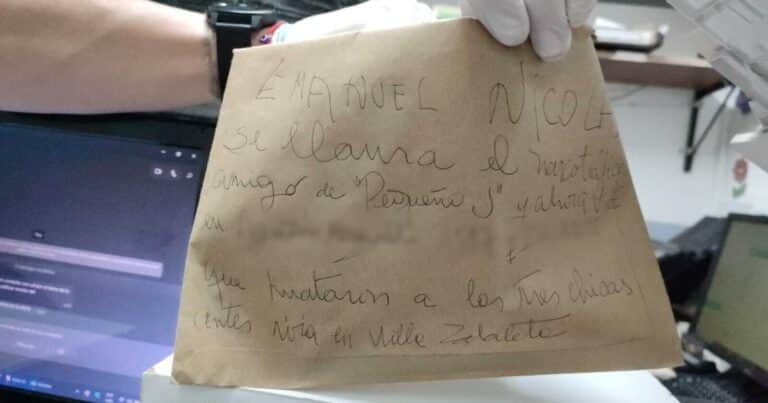 EMANUEL NICOL
se llama el narcotraf
amigo de "Pequeño J" y ahora
en
que mataron a las tres chicas
(antes vivía en Villa Zabaleta